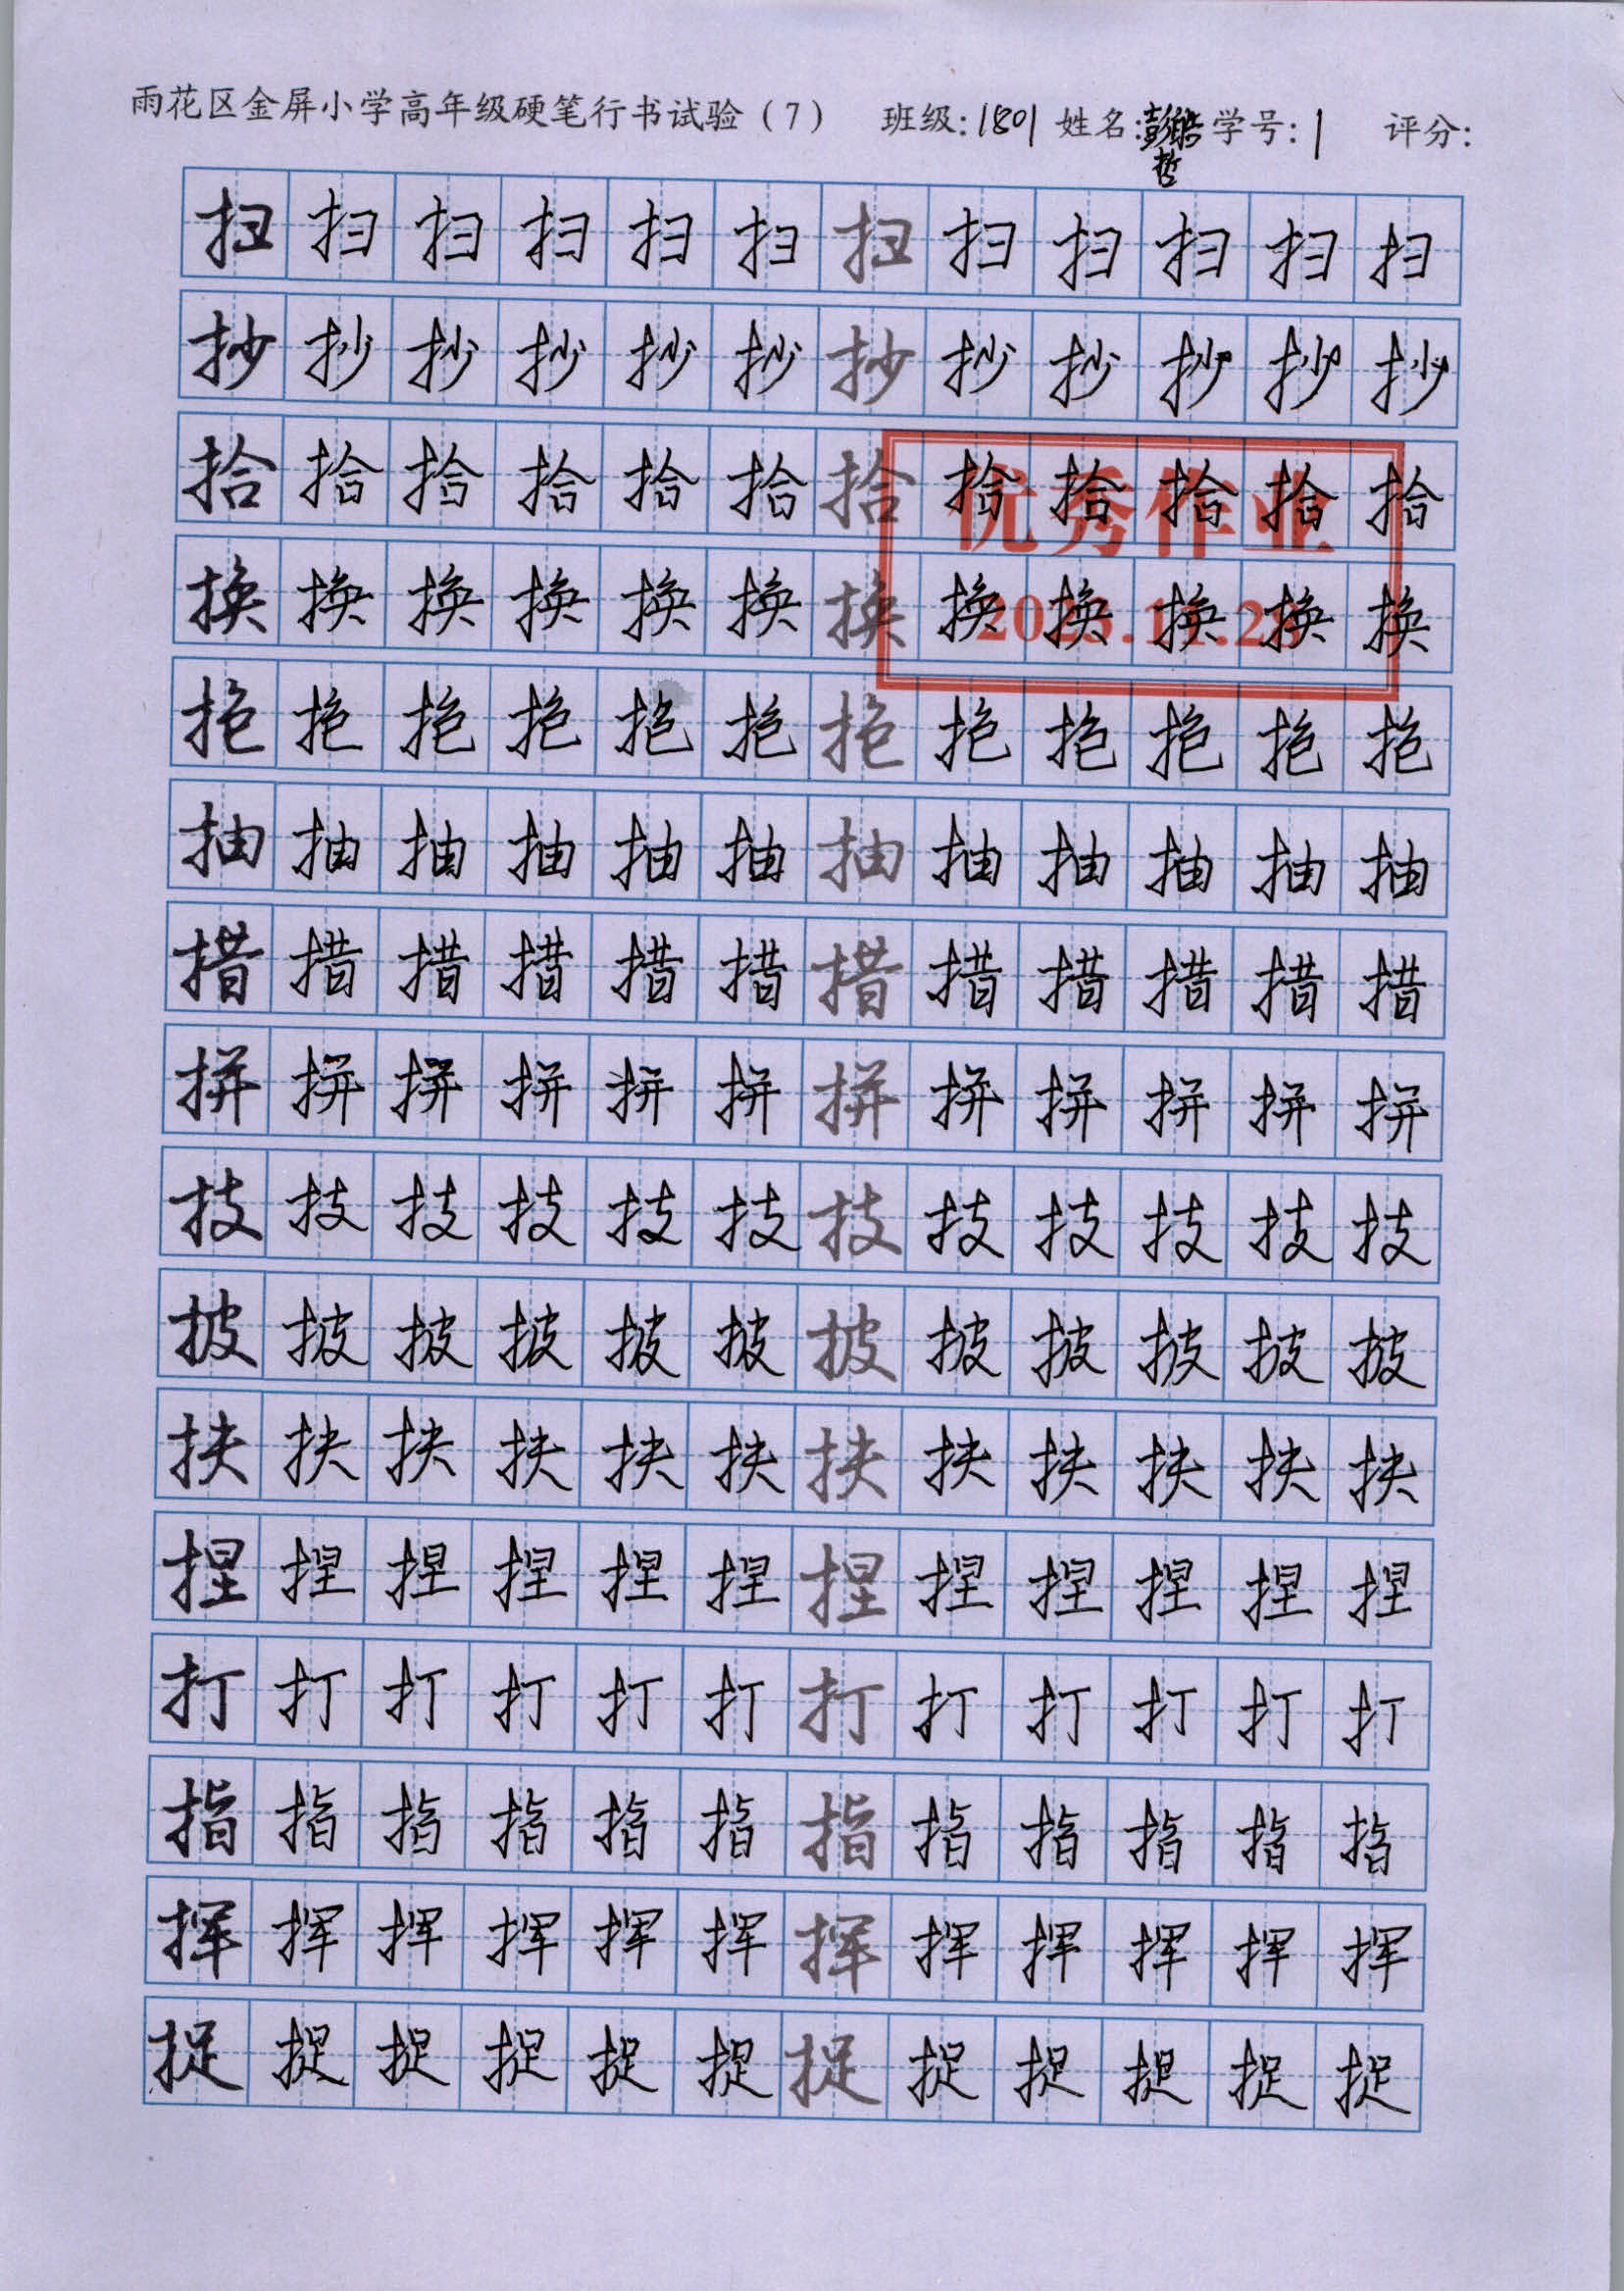 雨花区金屏小学高年级硬笔行书试验（7） 班级:1801 姓名:彭皓哲 学号:1 评分:
扫扫扫扫扫扫扫扫扫扫扫扫
抄抄抄抄抄抄抄抄抄抄抄抄
拾拾拾拾拾拾拾拾拾拾拾拾
优秀作业
换换换换换换换换换换换换
抱抱抱抱抱抱抱抱抱抱抱抱
抽抽抽抽抽抽抽抽抽抽抽抽
措措措措措措措措措措措措
拼拼拼拼拼拼拼拼拼拼拼拼
技技技技技技技技技技技技
披披披披披披披披披披披披
扶扶扶扶扶扶扶扶扶扶扶扶
捏捏捏捏捏捏捏捏捏捏捏捏
打打打打打打打打打打打打
指指指指指指指指指指指指
挥挥挥挥挥挥挥挥挥挥挥挥
捉捉捉捉捉捉捉捉捉捉捉捉